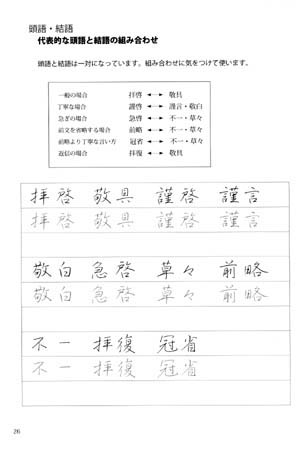 頭語・結語
代表的な頭語と結語の組み合わせ
頭語と結語は一対になっています。組み合わせに気をつけて使います。
一般の場合 拝啓 ◄─► 敬具
丁寧な場合 謹啓 ◄─► 謹言・敬白
急ぎの場合 急啓 ◄─► 不一・草々
前文を省略する場合 前略 ◄─► 不一・草々
前略より丁寧な言い方 冠省 ◄─► 不一・草々
返信の場合 拝復 ◄─► 敬具
拝啓 敬具 謹啓 謹言
拝啓 敬具 謹啓 謹言
敬白 急啓 草々 前略
敬白 急啓 草々 前略
不一 拝復 冠省
不一 拝復 冠省
26